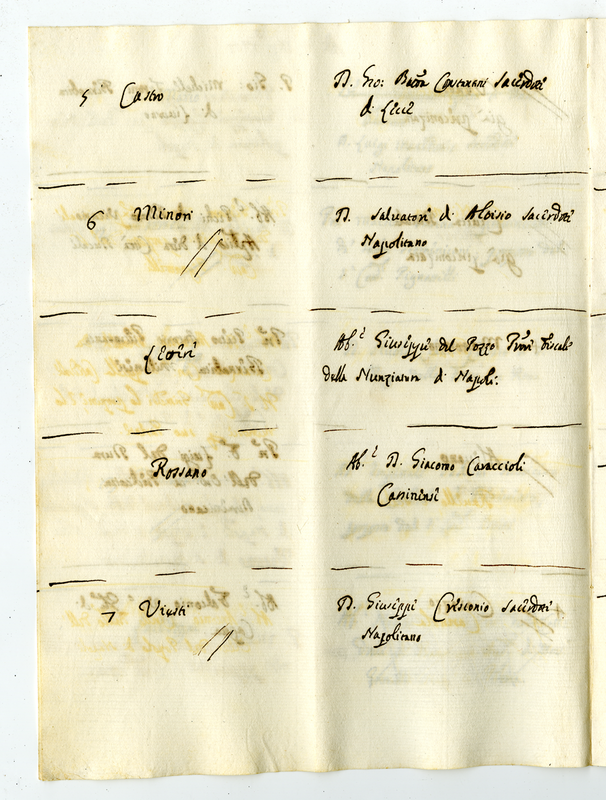 5 Castro
D. Gio: Batta Costantini Sacerdote
di Lecce
6 Minori
D. Salvatore di Aloisio Sacerdote
Napolitano
Ab.e Giuseppe del Pozzo Pron Fiscale
della Nunziatura di Napoli.
Rossano
Ab.e D. Giacomo Caraccioli
Cassinensi
7 Viesti
D. Giuseppe Crisconio Sacerdote
Napolitano